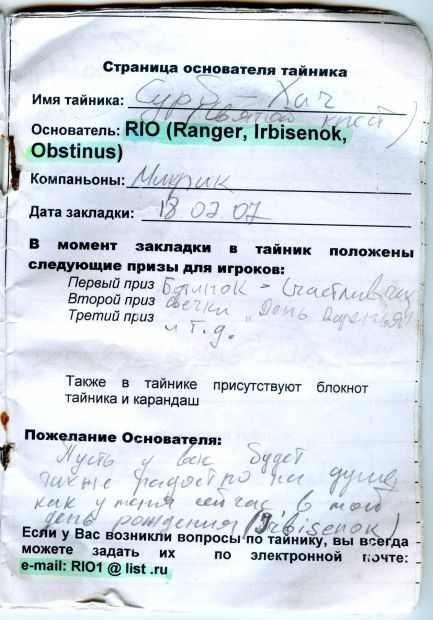 Страница основателя тайника
Имя тайника: Сурб-Хач
(святой крест)
Основатель: RIO (Ranger, Irbisenok,
Obstinus)
Компаньоны: Мирик
Дата закладки: 18 02 07
В момент закладки в тайник положены
следующие призы для игроков:
Первый приз - счастливчик
Второй приз свечки "День варенья"
Третий приз и т.д.
Также в тайнике присутствуют блокнот
тайника и карандаш
Пожелание Основателя:
Пусть у вас будет
также радостно на душе,
как у меня сейчас, в мой
день рождения (Irbisenok)
Если у Вас возникли вопросы по тайнику, вы всегда
можете задать их по электронной почте:
e-mail: RIO1 @ list .ru